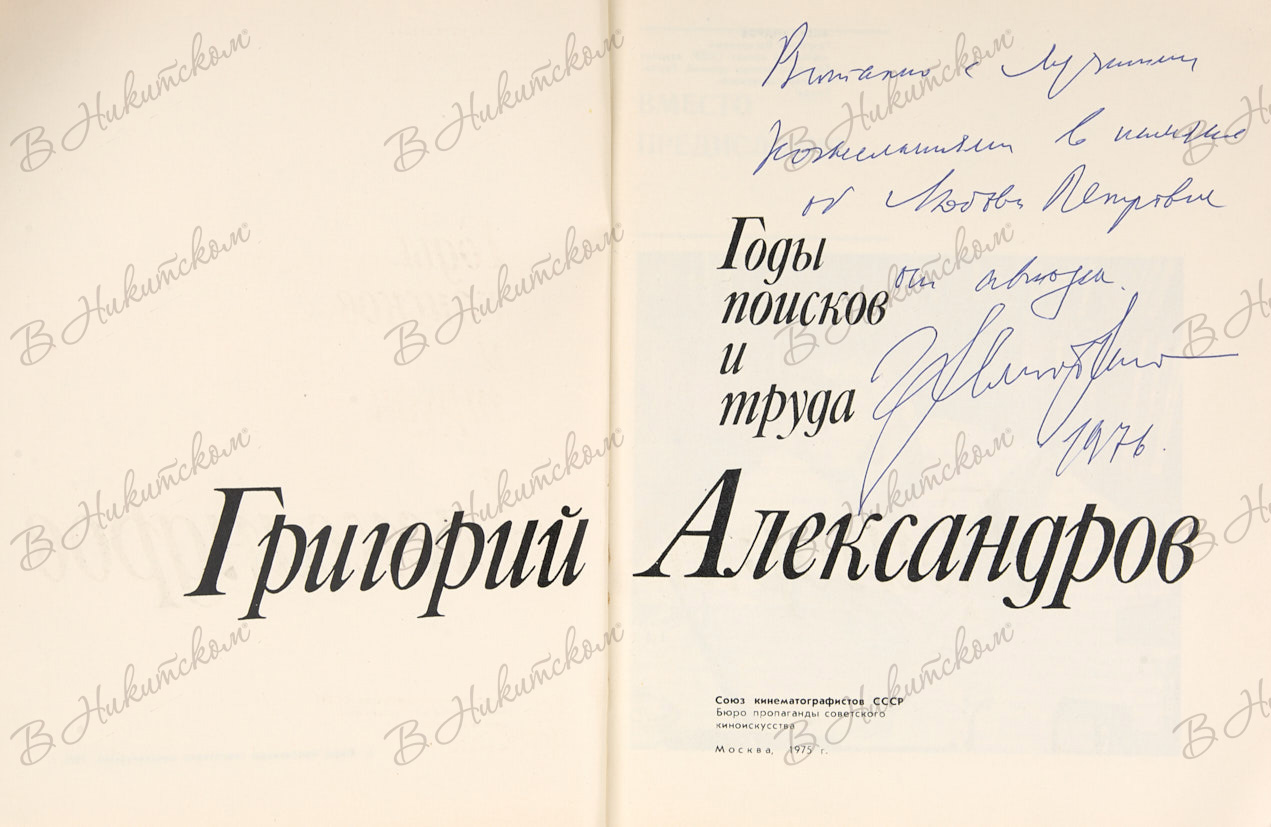 Виталию с лучшими
пожеланиями в память
об Любови Петровне
от автора.
1976.
Годы
поисков
и
труда
Григорий Александров
Союз кинематографистов СССР
Бюро пропаганды советского
киноискусства
Москва, 1975 г.
В Никитском